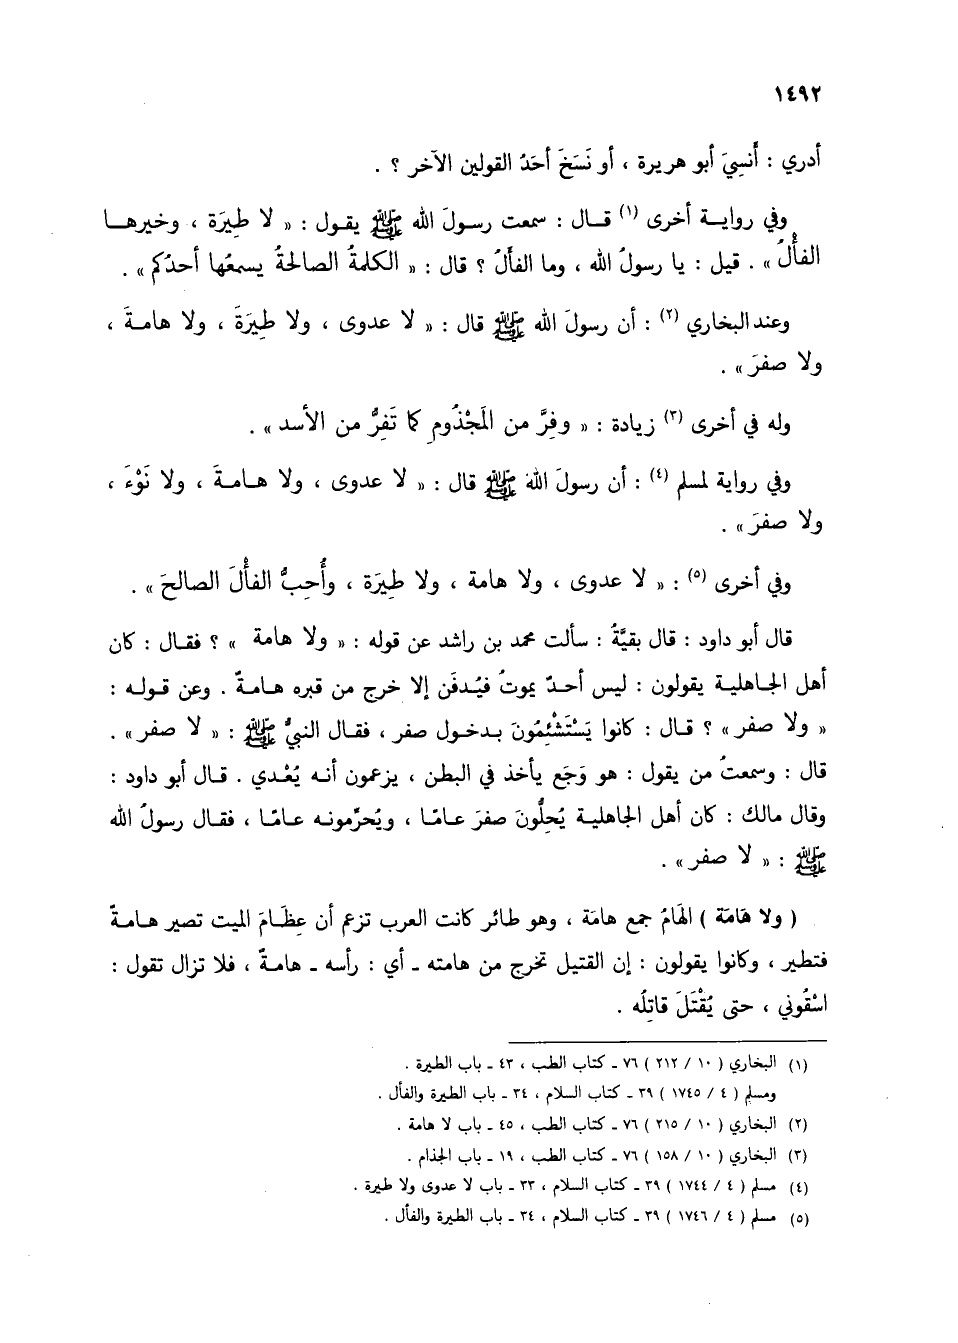 ١٤٩٢
أدري : أَنسِيَ أبو هريرة ، أو نَسَخَ أحَدُ القولين الآخر ؟ .
وفي روايـة أخرى (١) قـال : سمعت رسـولَ الله ﷺ يقول : « لا طِيَرَة ، وخيرهـا
الفأْلُ » . قيل : يا رسولُ الله ، وما الفأَلُ ؟ قال : « الكلمةُ الصالحةُ يسمعُها أحدُكم » .
وعند البخاري (٢) : أن رسولَ الله ﷺ قال : « لا عدوى ، ولا طِيَرَةَ ، ولا هامـةَ ،
ولا صفرَ » .
وله في أخرى (٣) زيادة : « وفِرَّ من المَجْذُومِ كما تَفِرُّ من الأسد » .
وفي رواية لمسلم (٤) : أن رسولَ الله ﷺ قال : « لا عدوى ، ولا هـامـةَ ، ولا نَوْءَ ،
ولا صفرَ » .
وفي أخرى (٥) : « لا عدوى ، ولا هامة ، ولا طِيَرَة ، وأُحِبُّ الفأْلَ الصالحَ » .
قال أبو داود : قال بقيَّةُ : سألت محمد بن راشد عن قوله : « ولا هامة » ؟ فقـال : كان
أهل الجـاهليـة يقولون : ليس أحدٌ يموتُ فيُدفَن إلا خرج من قبره هامـةٌ . وعن قولـه :
« ولا صفر » ؟ قـال : كانوا يَسْتَشْئِمُونَ بـدخـول صفر ، فقـال النبيُّ ﷺ : « لا صفر » .
قال : وسمعتُ من يقول : هو وَجَع يأخذ في البطن ، يزعمون أنـه يُعْـدي . قـال أبو داود :
وقال مالك : كان أهل الجاهليـة يُحِلُّونَ صفرَ عـامًـا ، ويُحرِّمونـه عـامًـا ، فقـال رسولُ الله
ﷺ : « لا صفر » .
( ولا هَامَة ) الهَامُ جمع هامَة ، وهو طائر كانت العرب تزعم أن عِظَـامَ الميت تصير هـامـةٌ
فتطير ، وكانوا يقولون : إن القتيل تخرج من هامته ـ أي : رأسه ـ هامـةٌ ، فلا تزال تقول :
اسْقُوني ، حتى يُقْتَلَ قاتِلُه .
(١) البخاري ( ١٠ / ٢١٢ ) ٧٦ ـ كتاب الطب ، ٤٣ ـ باب الطيرة .
ومسلم ( ٤ / ١٧٤٥ ) ٣٩ ـ كتاب السلام ، ٣٤ ـ باب الطيرة والفأل .
(٢) البخاري ( ١٠ / ٢١٥ ) ٧٦ ـ كتاب الطب ، ٤٥ ـ باب لا هامة .
(٣) البخاري ( ١٠ / ١٥٨ ) ٧٦ ـ كتاب الطب ، ١٩ ـ باب الجذام .
(٤) مسلم ( ٤ / ١٧٤٤ ) ٣٩ ـ كتاب السلام ، ٣٣ ـ باب لا عدوى ولا طيرة .
(٥) مسلم ( ٤ / ١٧٤٦ ) ٣٩ ـ كتاب السلام ، ٣٤ ـ باب الطيرة والفأل .